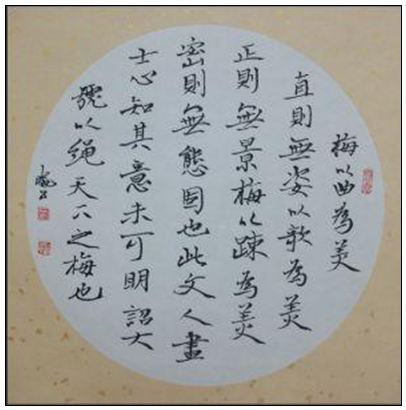 梅以曲為美
直則無姿以欹為美
正則無景梅以踈為美
密則無態固也此文人畫
士心知其意未可明詔大
號以绳天下之梅也